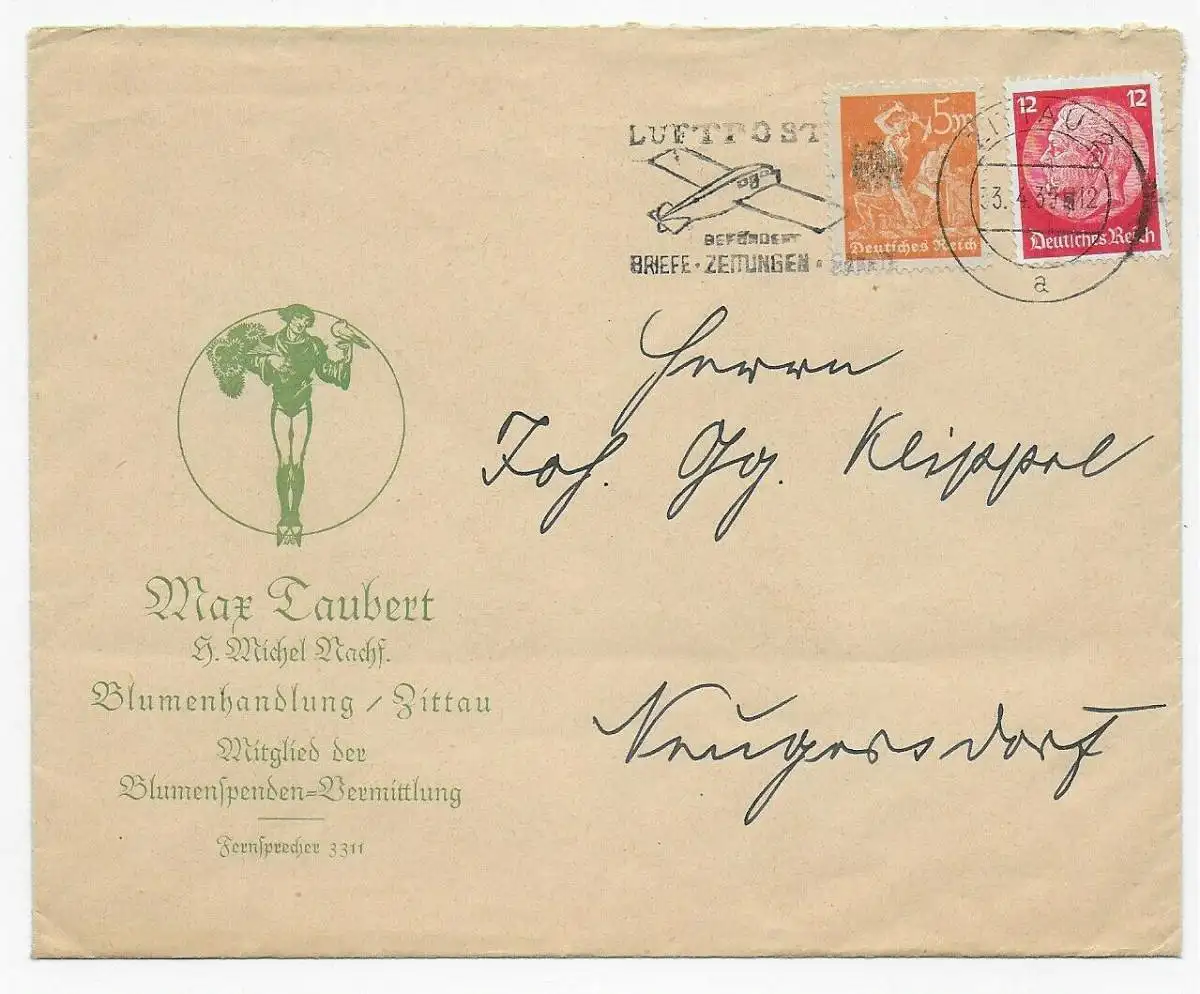 LUFTPOST
BEFÖRDERT
BRIEFE · ZEITUNGEN ·
5m
Deutsches Reich
ZITTAU
a
12 12
Deutsches Reich
Herrn
Joh. Gg. Klippel
Neugersdorf
Max Taubert
H. Michel Nachf.
Blumenhandlung / Zittau
Mitglied der
Blumenspenden=Vermittlung
Fernsprecher 3311